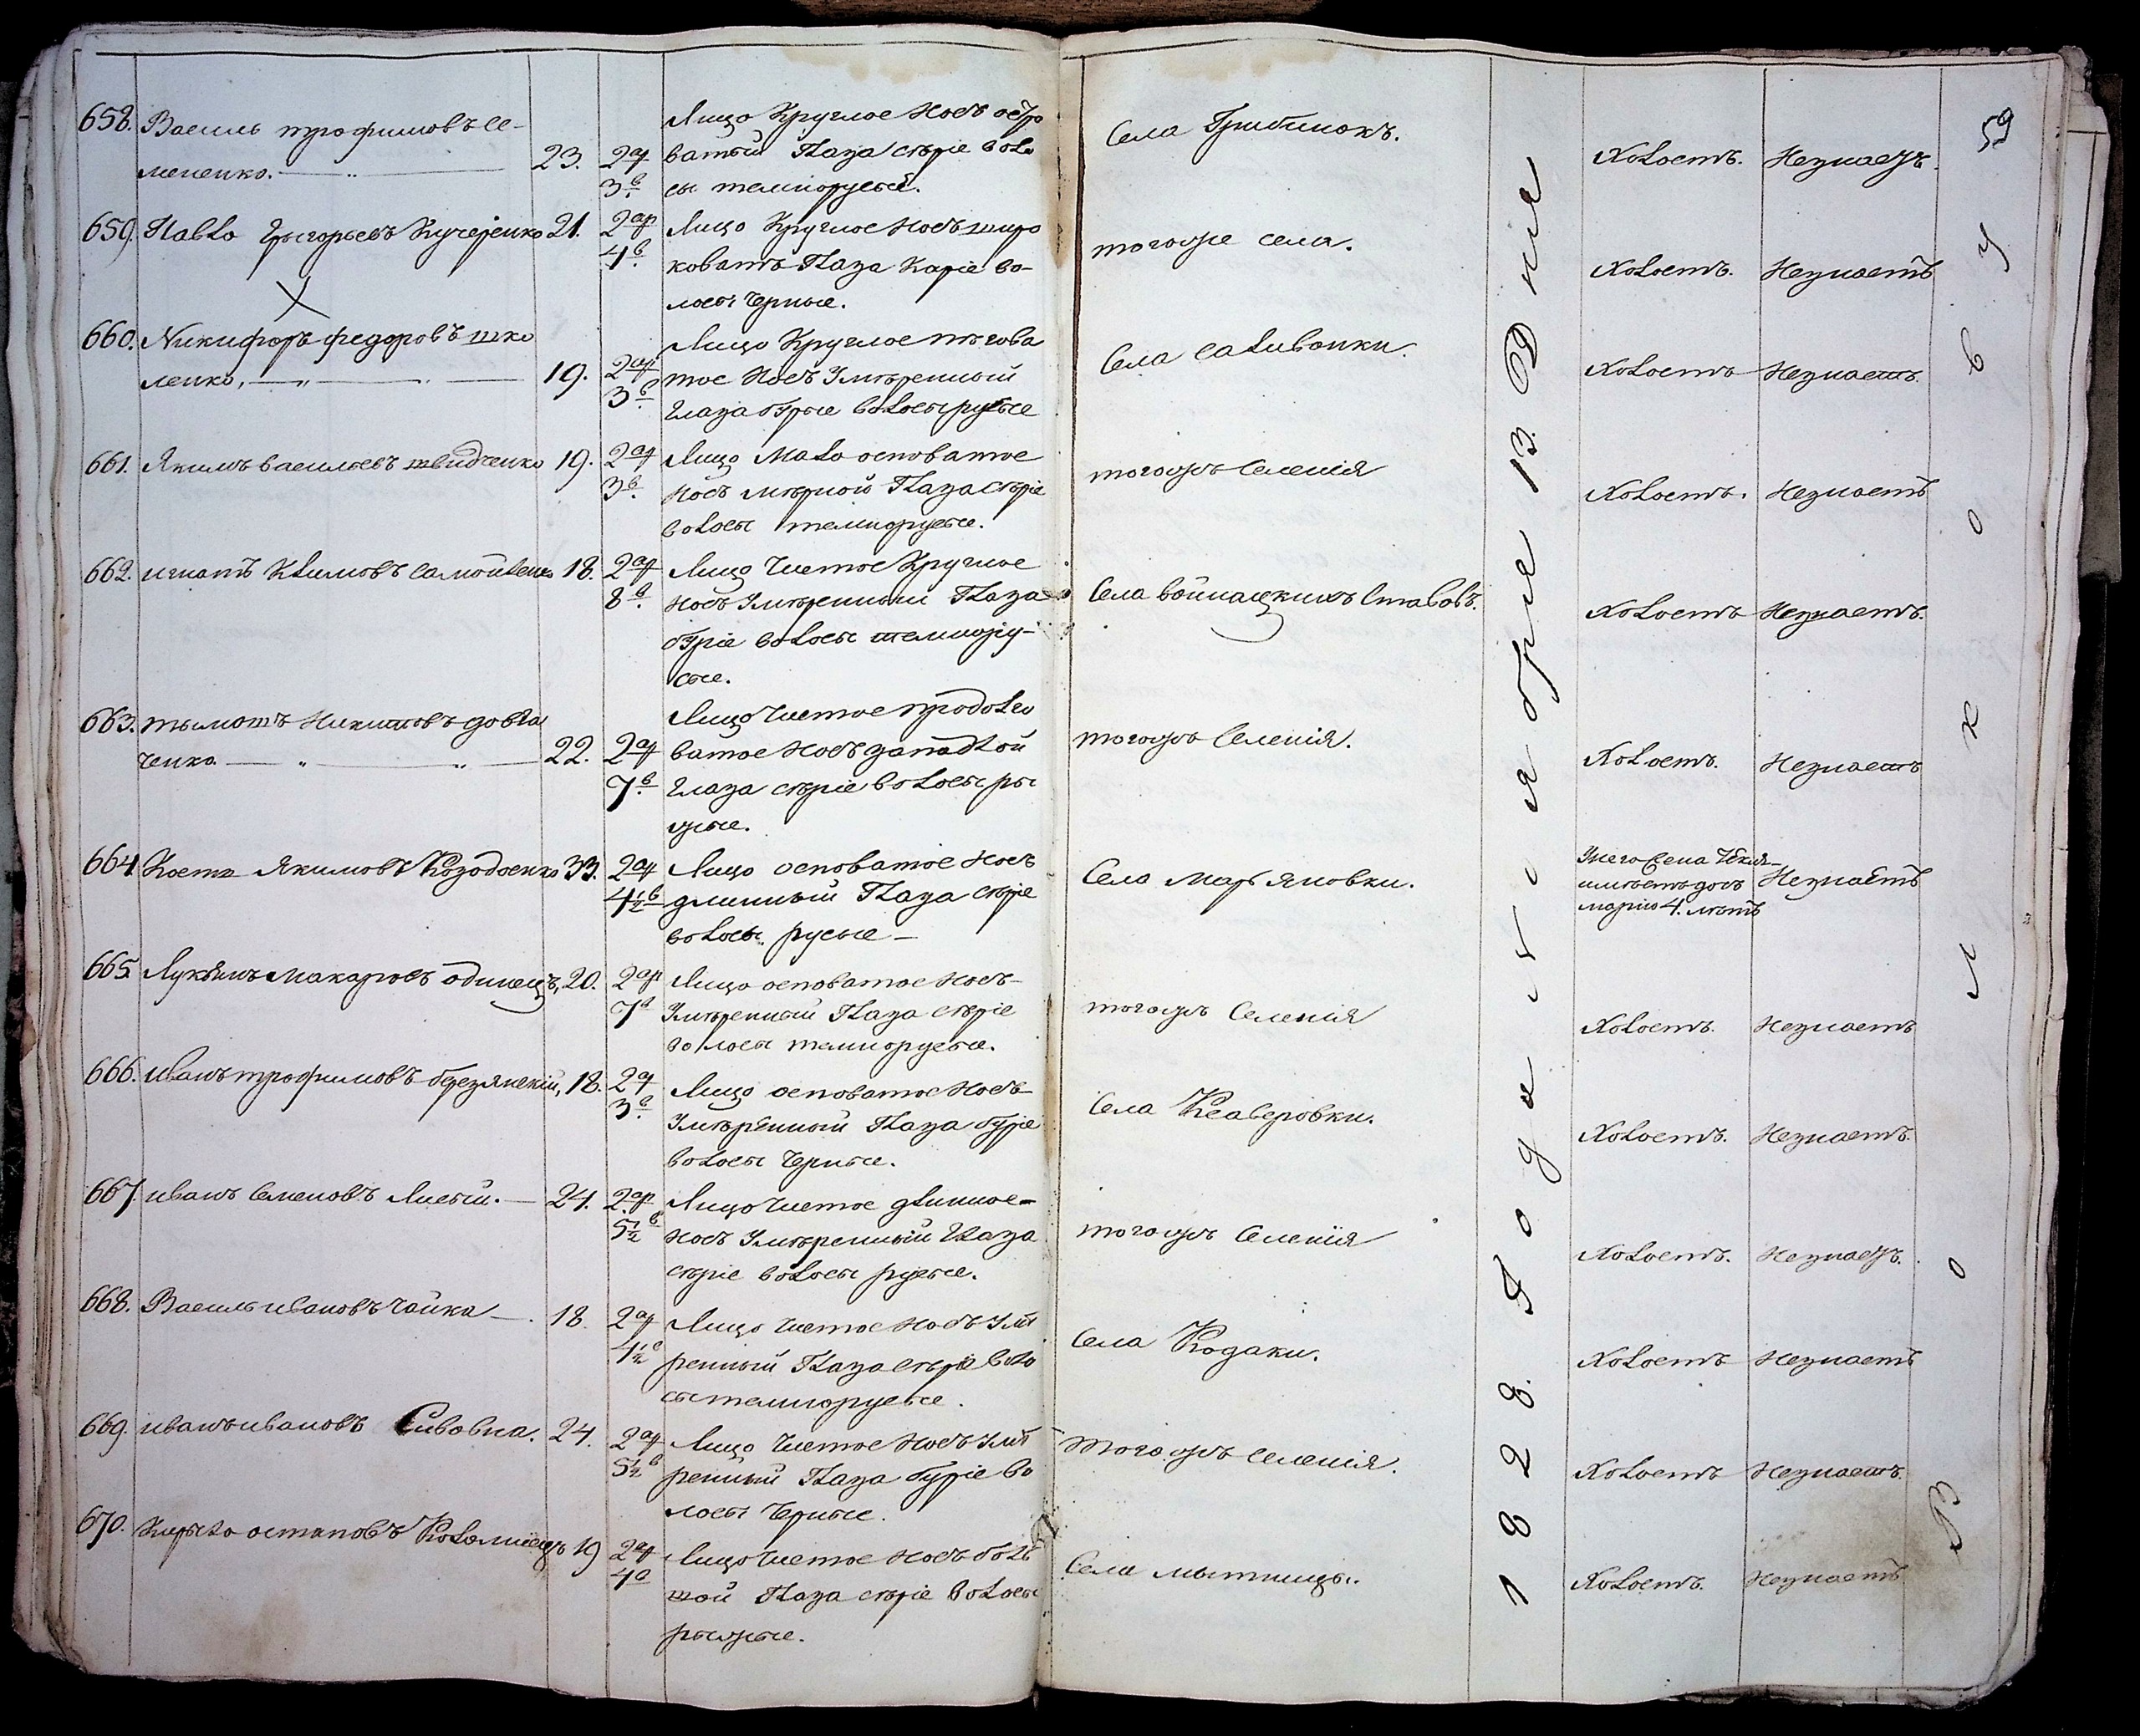 59
658. Василь трофимовъ Се-
менченко. 23. 2 ар 3 в.
Лицо Круглое Носъ остро
ватый Глаза серіе воло
сы темнорусые.
Села Гребинокъ.
Холостъ. Незнаетъ.
659. Павло Грыгорьевъ Кучеренко 21. 2 ар 4 в.
Лицо Круглое Носъ широ
коватъ Глаза Каріе во-
лосы Черные.
тогоже села.
Холостъ. Незнаетъ
660. Никифоръ федоровъ шко
ленко, 19. 2 ар 3 в.
Лицо Круглое пегова
тое Носъ Умеренный
Глаза бурые волосы русые
Села саливонки.
Холостъ Незнаетъ.
661. Якимъ василевъ швидченко 19. 2 ар 3 в.
Лицо Мало осповатое
Носъ мерной Глаза серіе
волосы темнорусые.
тогожъ Селенія
Холостъ. Незнаетъ
662. игнатъ Климовъ самойленко 18. 2 ар 8 в.
Лицо Чистое Круглое
Носъ Умеренный Глаза
буріе волосы темнору-
сые.
Села войнацкихъ Ставовъ.
Холостъ Незнаетъ.
663. тымошъ Никитовъ довга
ченко 22. 2 ар 7 в.
Лицо Чистое продолго
ватое Носъ западлой
Глаза серіе волосы ры
жые.
тогожъ Селенія.
Холостъ. Незнаетъ
664. Коста Якимовъ Козодоенко 33. 2 ар 4½ в
Лицо осповатое Носъ
длинный Глаза серіе
волосы русые
Села Марьяновки.
У него Жена
имеетъ дочь
марию 4. летъ
Незнаетъ
665. Лукьянъ Макаровъ одинецъ, 20. 2 ар 7 в
Лицо осповатое Носъ
Умеренный Глаза серіе
волосы темнорусые.
тогожъ Селенія
Холостъ. Незнаетъ
666. иванъ трофимовъ березянскій, 18. 2 ар 3 в.
Лицо осповатое Носъ
Умеренный Глаза буріе
волосы Черные.
Села Ксаверовки.
Холостъ. Незнаетъ.
667. иванъ Семеновъ Лисый. 24. 2 ар 5½ в
Лицо Чистое длинное
Носъ Умеренный Глаза
серіе волосы русые.
тогожъ Селенія
Холостъ. Незнаетъ.
668. Василь ивановъ чайка 18. 2 ар 4½ в
Лицо Чистое Носъ Уме
ренный Глаза серіе воло
сы темнорусые.
Села Кодаки.
Холостъ Незнаетъ
669. иванъ ивановъ Сивовна. 24. 2 ар 5½ в
Лицо Чистое Носъ Уме
ренный Глаза буріе во
лосы Черные.
Тогожъ селенія.
Холостъ Незнаетъ.
670. Кирыло остаповъ Коломіецъ 19 2 ар 4 в
Лицо Чистое Носъ боль
шой Глаза серіе волосы
рыжые.
Села мытницы.
Холостъ. Незнаетъ
1828. Года Генсяобря 13. Дня